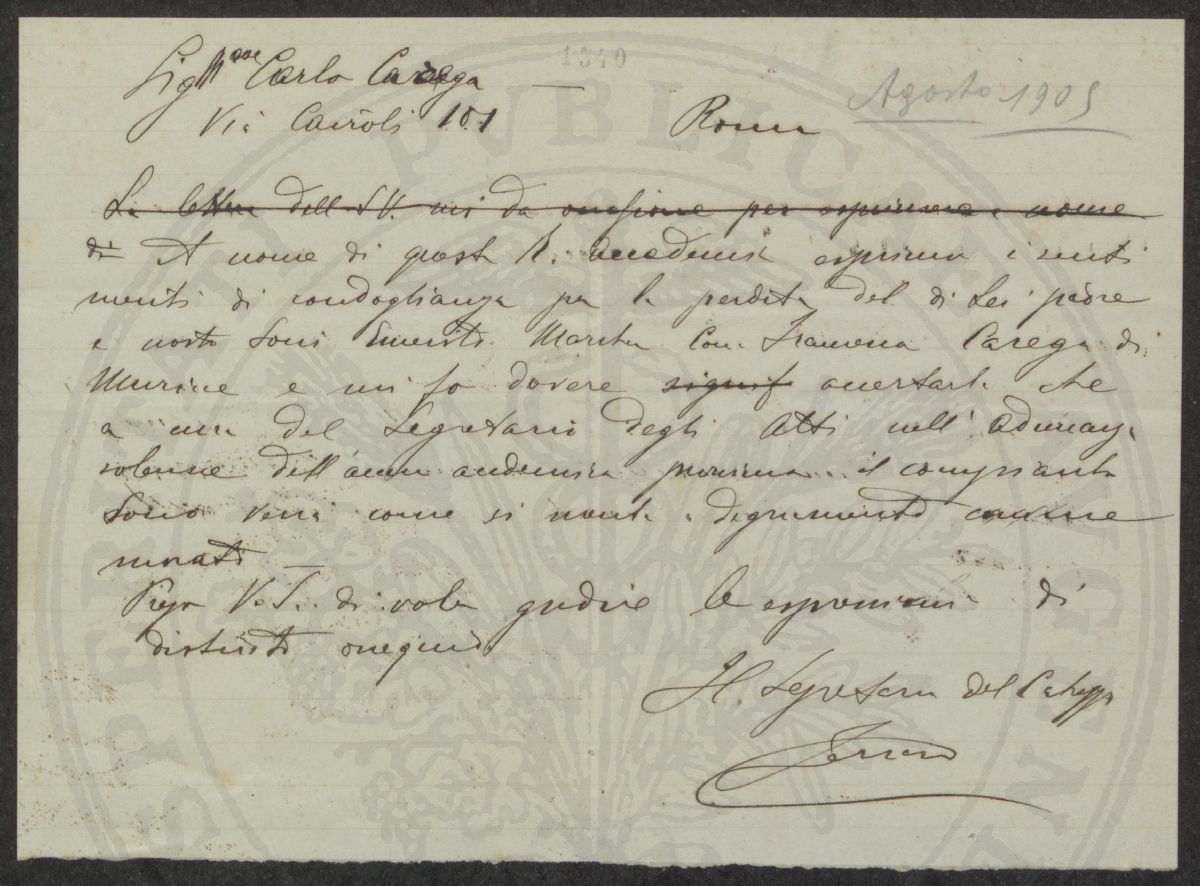 Sig Mse Carlo Carega
1340
Agosto 1905
Via Cairoli 101 Roma
La lettera dell SV. mi da occasione per esprimere a nome
di A nome di questa R. accademia esprimo i senti
menti di condoglianza per la perdita del di Lei padre
e nostro Socio Emerito March Com. Francesco Carega di
Muricce e mi fo dovere signif avvertarla che
a cura del Segretario degli Atti nell' adunanza
solenne dell' anno accademico prossimo il compianto
Socio verrà come si merita degnamente comme
morato
Prego V. S. di voler gradire le espressioni di
distinto ossequio
Il Segretario del Carteggio